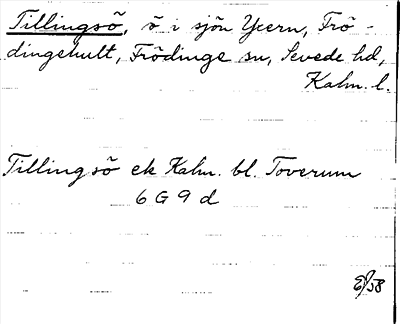 Tillingsö, ö i sjön Ycern, Frö-
dingehult, Frödinge sn, Sevede hd,
Kalm. l.
Tillingsö ek Kalm. bl. Toverum
6 G 9 d